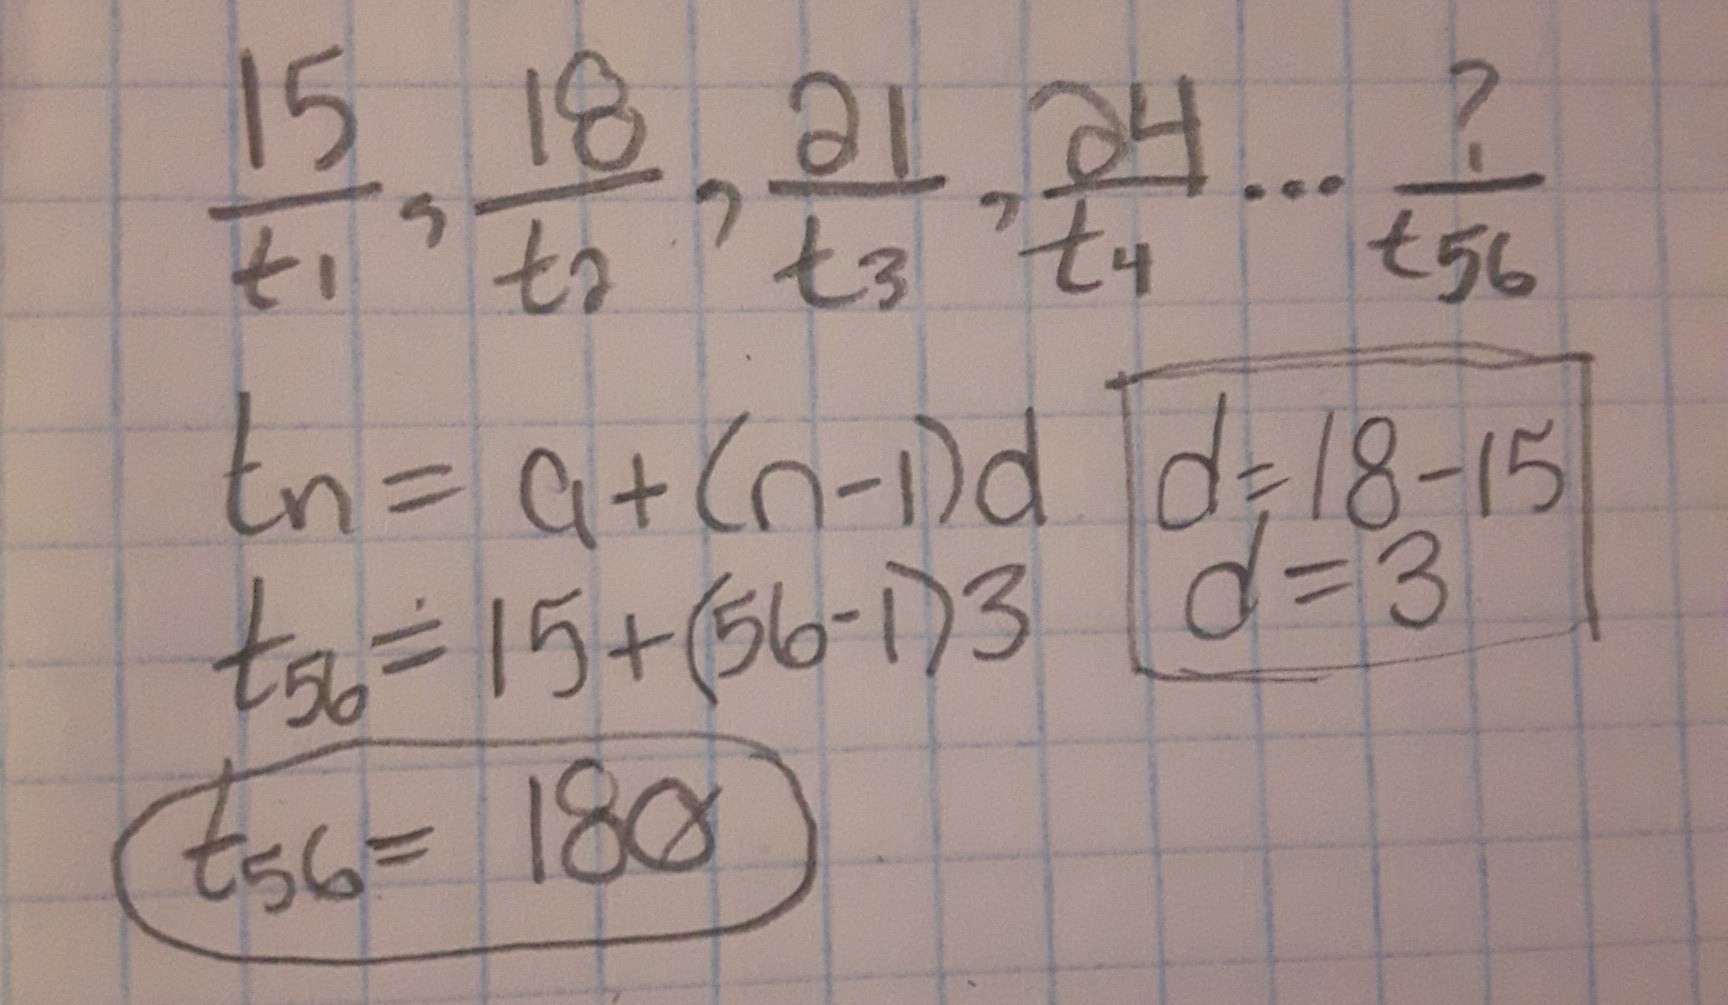 15 , 18 , 21 , 24 ... ?
t1 t2 t3 t4 t56
tn = a + (n-1)d
d = 18 - 15
d = 3
t56 = 15 + (56-1)3
t56 = 180